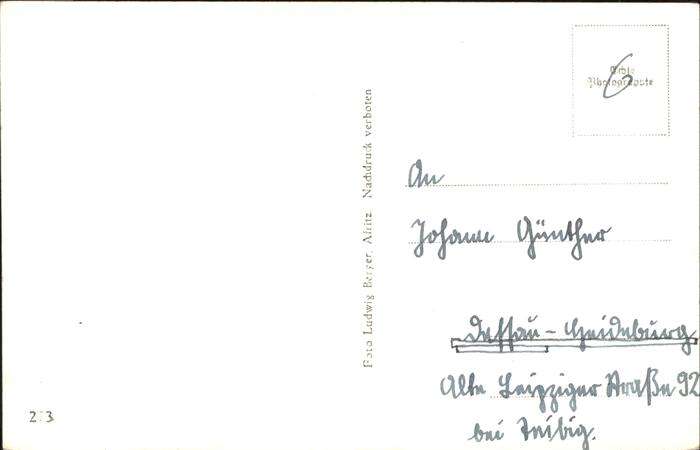 Echte
Photographie
6
Foto Ludwig Berger, Afritz. Nachdruck verboten
An
Johann Günther
Dessau-Heideburg
Alte Leipziger Straße 92
bei
2 3